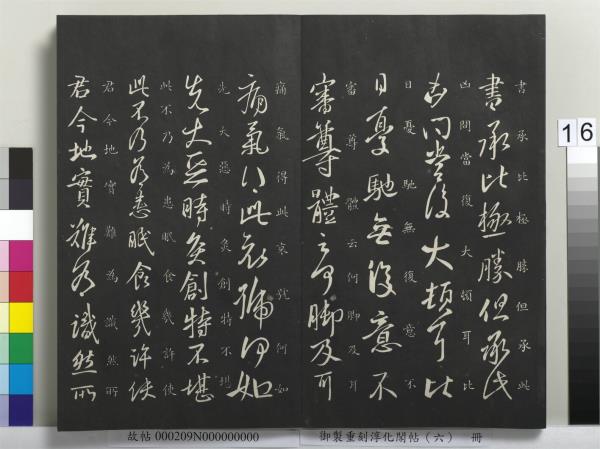 書承比極勝但承此
書承比極勝但承此
凶問當復大頓耳比
凶問當復大頓耳比
日憂馳無復意不
日憂馳無復意不
審尊體云何脚及耳
審尊體云何脚及耳
痛氣得此哀號何如
痛氣得此哀號何如
先大惡時灸創特不堪
先大惡時灸創特不堪
此不乃為患眠食幾許使
此不乃為患眠食幾許使
君今地實難為識然所
君今地實難為識然所
16
故帖 000209N000000000
御製重刻淳化閣帖(六) 冊